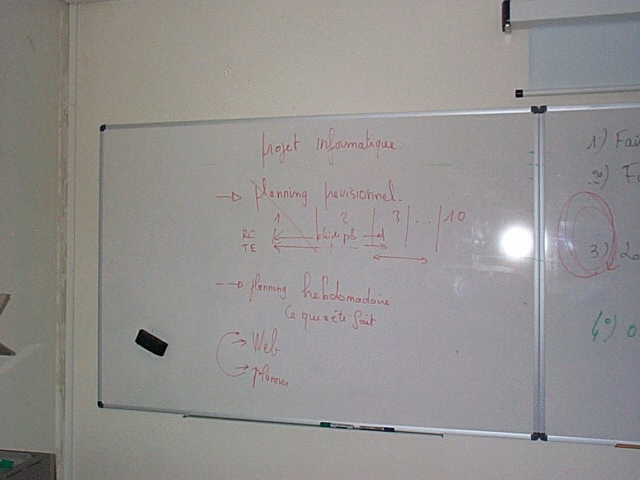 projet informatique.
→ planning previsionnel.
1 | 2 | 3 | ... | 10
RC
TE
--→ planning hebdomadaire
Ce qui a été fait
→ Web
→ planner
1) Fai
2) Fa
3)
4°) o